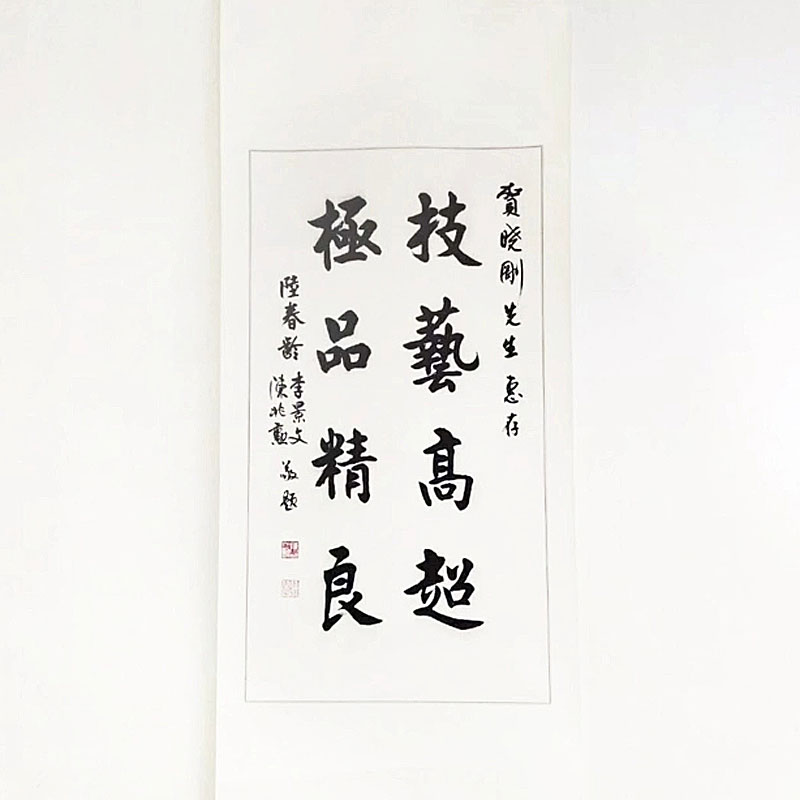 賀晓剛先生惠存
技藝高超
極品精良
陸春齡
李景文
陳兆勳
敬題